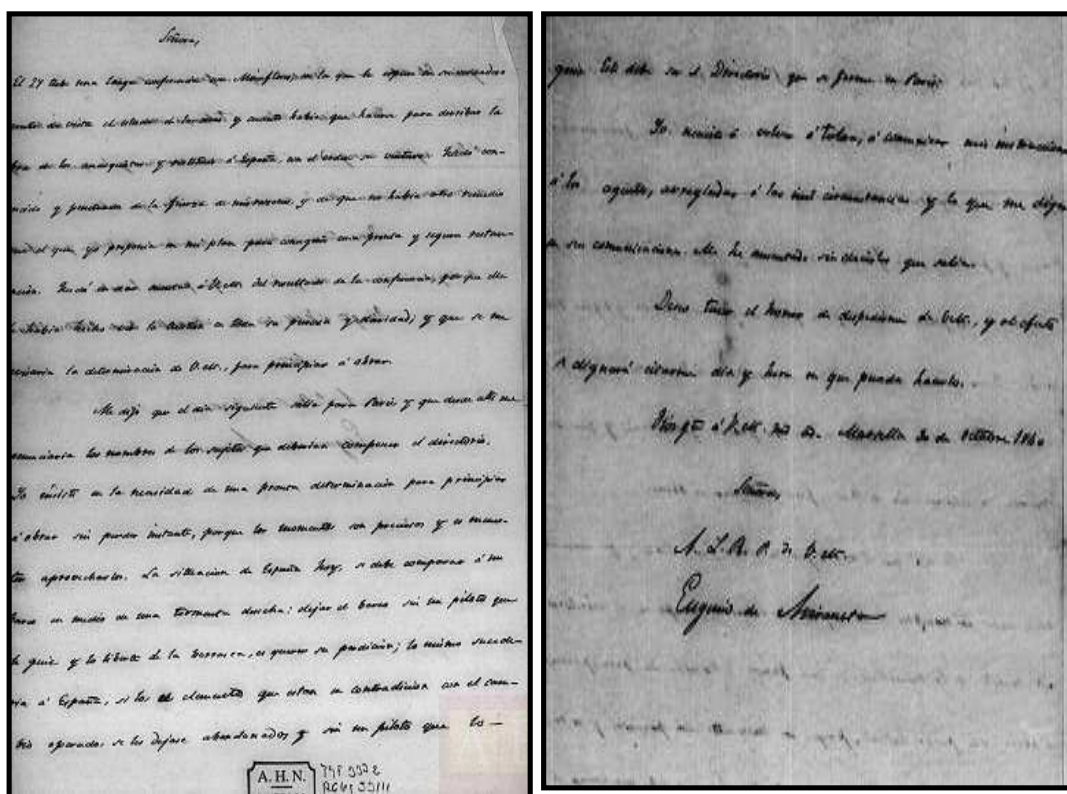 Señora,
El 27 tube una larga conferencia con Miraflores, en la que le espuse en su verdadero
punto de vista el estado de las cosas y cuanto habia que hacer para derribar la
obra de los anarquistas y restituir á España, con el orden su ventura. Quedó con-
vencido y penetrado de la fuerza de mis razones, y de que no habia otro remedio
que el que yo proponia en mi plan para conseguir una pronta y segura restau-
racion. Quedó en dar cuenta á V.M. del resultado de la conferencia, porque ella
habia la cuestion en toda su pureza y claridad; y que se me
la determinacion de V.M., para principiar á obrar.
Me dijo que el dia siguiente salia para Paris y que desde alli me
anunciaria los nombres de los sujetos que deberian componer el directorio.
Yo insistí en la necesidad de una pronta determinacion para principiar
á obrar sin perder instante, porque los momentos son preciosos y es menes-
ter aprovecharlos. La situacion de España hoy, se debe comparar á un
barco en medio de una tormenta desecha: dejar el barco sin un piloto que
le guie y lo liberte de la borrasca, es querer su perdicion; lo mismo sucede-
ria á España, si los elementos que estan en contradicion con el cam-
bio operado, se les dejase abandonados y sin un piloto que lo—
A.H.N.
guie. Este debe ser el Directorio que se forme en Paris.
Yo necesito volver á Tolon, á comunicar mis instrucciones
á los agentes, arregladas á las circunstancias y lo que me digan
en sus comunicaciones. Me he ausentado sin decirles que salia.
Deseo tener el honor de despedirme de V.M., y al efecto
se dignará citarme dia y hora en que pueda hacerlo.
Dios gue á V.M. ms as. Marsella 30 de octubre 1840
Señora,
A. L. R. P. de V.M.
Eugenio de Aviraneta